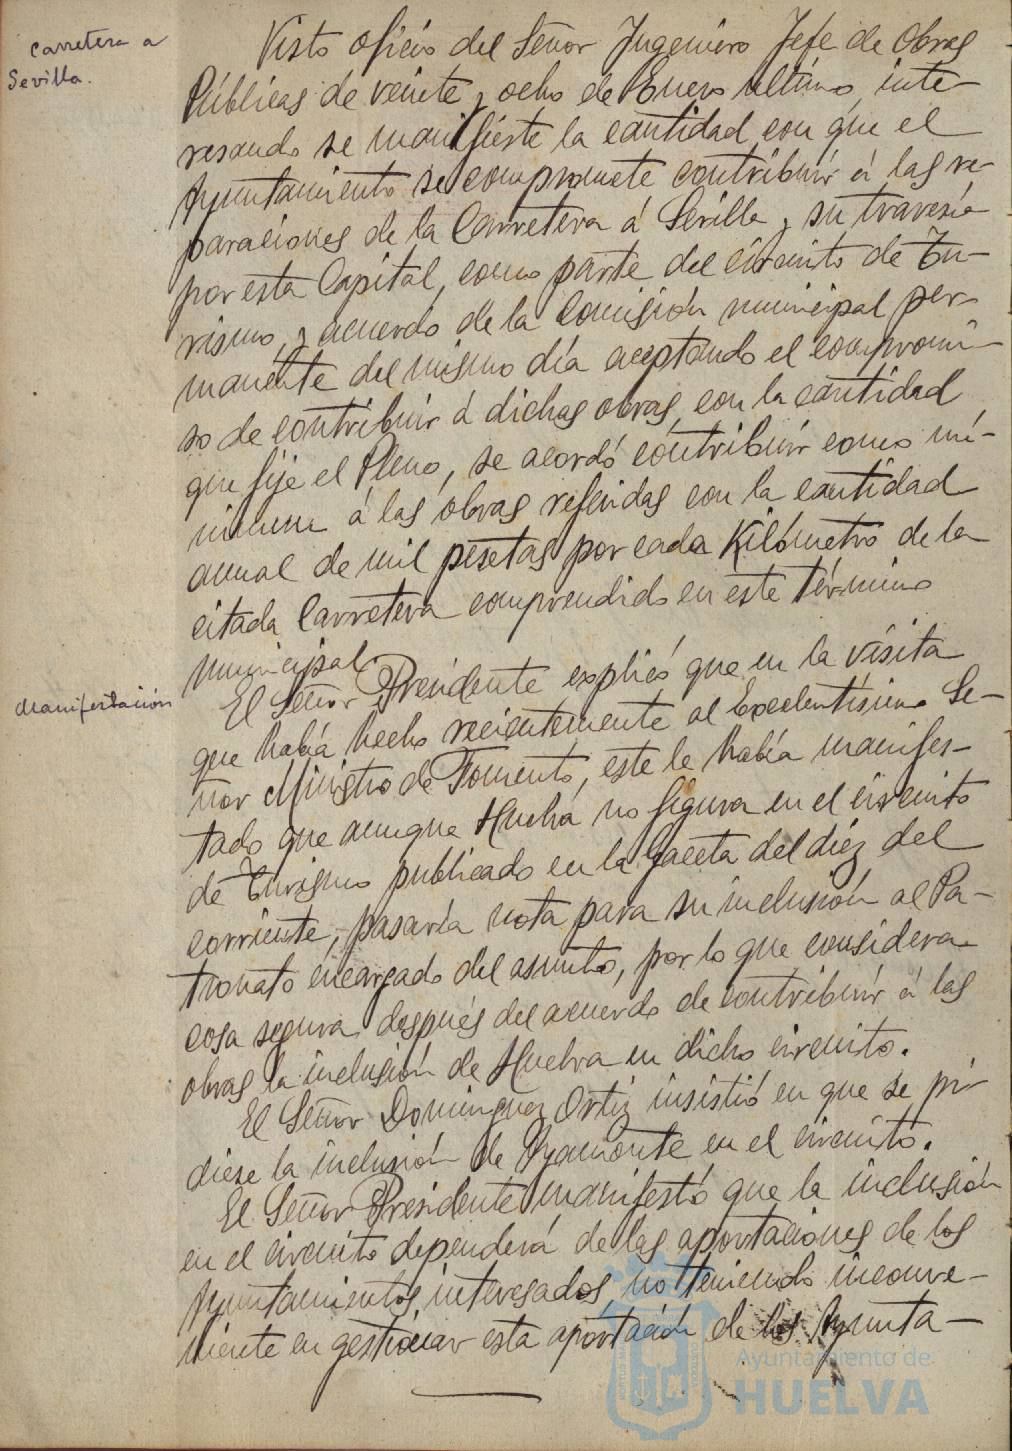 Carretera a
Sevilla.
Visto oficio del Señor Ingeniero Jefe de Obras
Públicas de veinte y ocho de Enero último, inte-
resando se manifieste la cantidad con que el
Ayuntamiento se compromete contribuir á las re-
paraciones de la Carretera á Sevilla y su travesía
por esta Capital, como parte del circuito de Tu-
rismo, y acuerdo de la Comisión municipal per-
manente del mismo día aceptando el compromi-
so de contribuir á dichas obras, con la cantidad
que fije el Pleno, se acordó contribuir como mí-
nimum á las obras referidas con la cantidad
anual de mil pesetas por cada Kilómetro de la
citada Carretera comprendido en este término
municipal.
Manifestación
El Señor Presidente explicó que en la visita
que había hecho recientemente al Excelentísimo Se-
ñor Ministro de Fomento, este le había manifes-
tado que aunque Huelva no figura en el circuito
de Turismo publicado en la Gaceta del diez del
corriente, pasaría nota para su inclusión al Pa-
tronato encargado del asunto, por lo que considera
cosa segura después del acuerdo de contribuir á las
obras la inclusión de Huelva en dicho circuito.
El Señor Dominguez Ortiz insistió en que se pi-
diese la inclusión de Ayamonte en el circuito.
El Señor Presidente manifestó que la inclusión
en el circuito dependerá de las aportaciones de los
Ayuntamientos interesados, no teniendo inconve-
niente en gestionar esta aportación de los Ayunta-
Ayuntamiento de
HUELVA